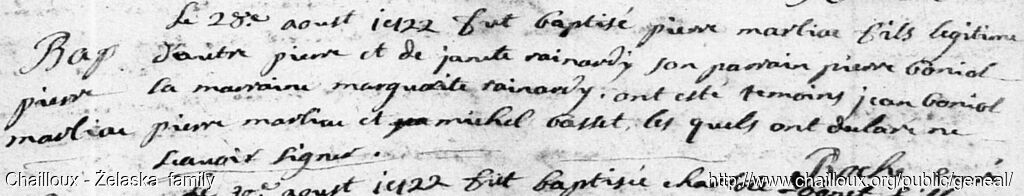 Le 28e aoust 1722 fut baptisé pierre marliac fils legitime
Bap d'autre pierre et de janete rainardy son parrain pierre boniol
pierre la marraine marguerite rainardy. ont esté temoins jean boniol
marliac pierre marliac et michel basset, les quels ont declare ne
scavoir signer.
1722 fut baptisée
Chailloux - Želaska family
http://www.chailloux.org/public/geneal/